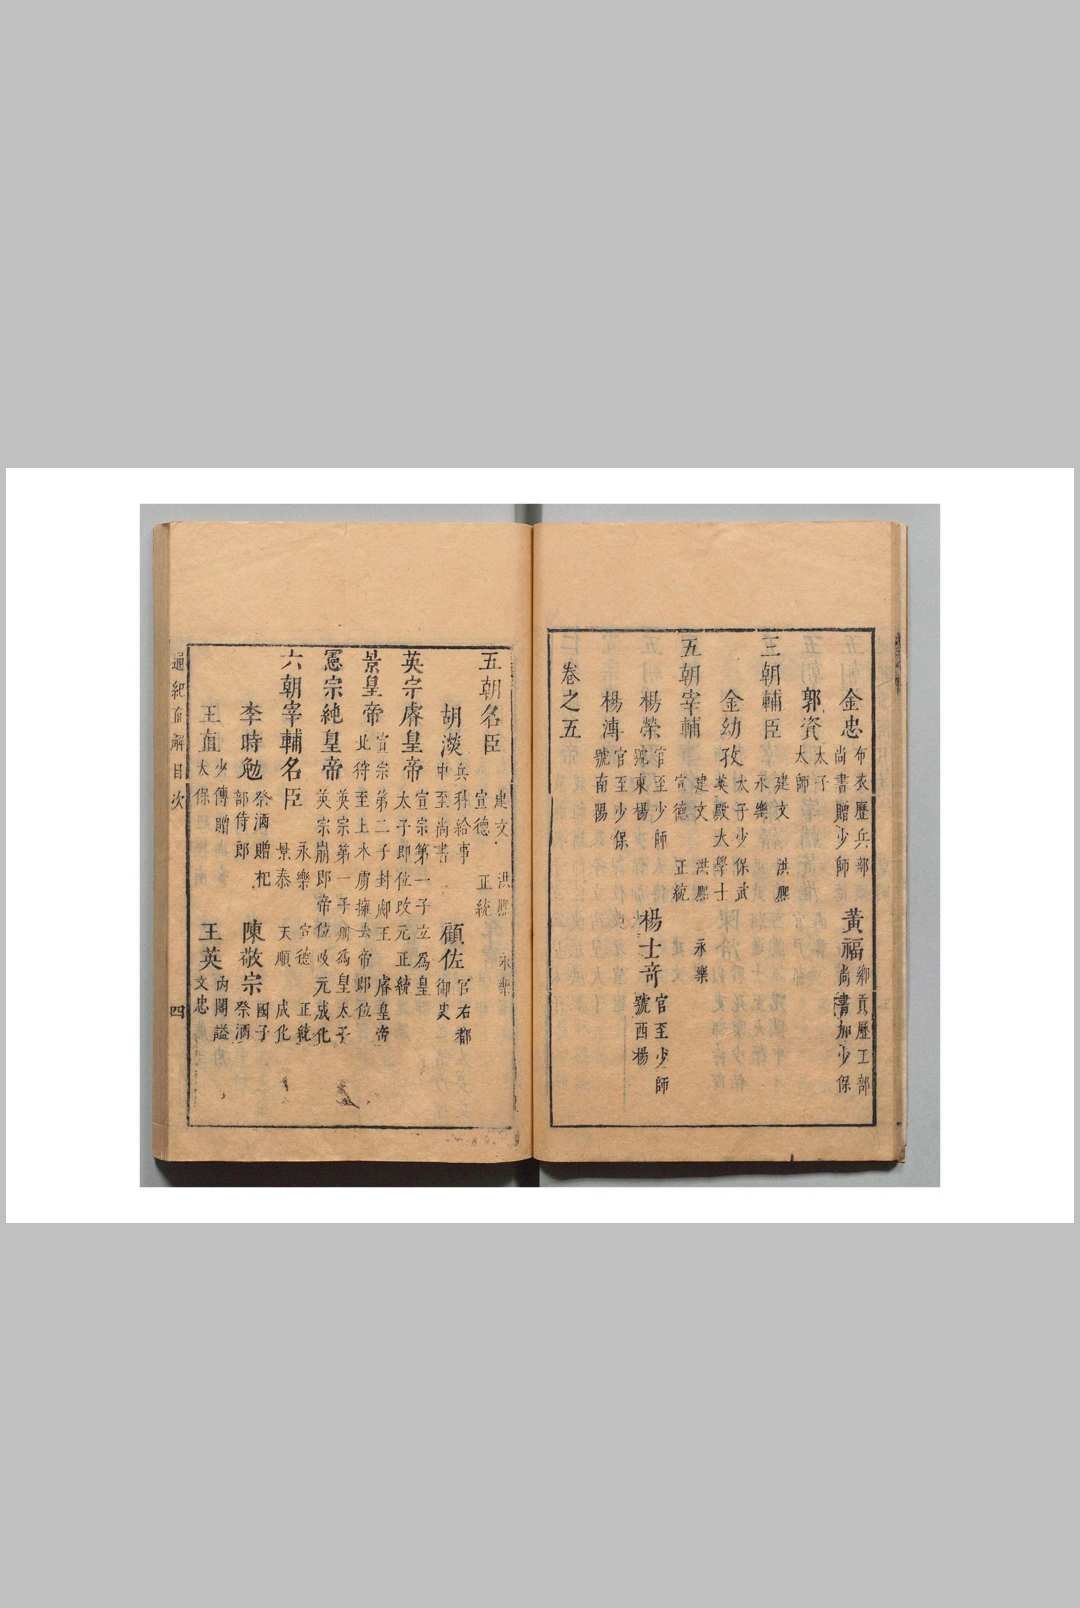 金忠 布衣歷兵部尚書贈少師 黃福 鄉貢歷工部尚書加少保
郭資 太子太師
三朝輔臣 建文 洪熈 永樂
金幼孜 太子少保武英殿大學士
五朝宰輔 建文 洪熈 永樂 宣德 正統
楊榮 官至少師號東楊 楊士奇 官至少師號西楊
楊溥 官至少保號南陽
卷之五
五朝名臣 建文 洪熈 永樂 宣德 正統
胡濙 兵科給事中至尚書 顧佐 官右都御史
英宗睿皇帝 宣宗第一子立爲皇太子即位改元正統
景皇帝 宣宗第二子封郕王 睿皇帝北狩至上木虜擁去帝即位
憲宗純皇帝 英宗第一子 爲皇太子英宗崩即帝位改元成化
六朝宰輔名臣 永樂 宣德 正統 景泰 天順 成化
李時勉 祭酒贈礼部侍郎 陳敬宗 國子祭酒
王直 少傳贈太保 王英 内閣謚文忠
通紀直解目次
四